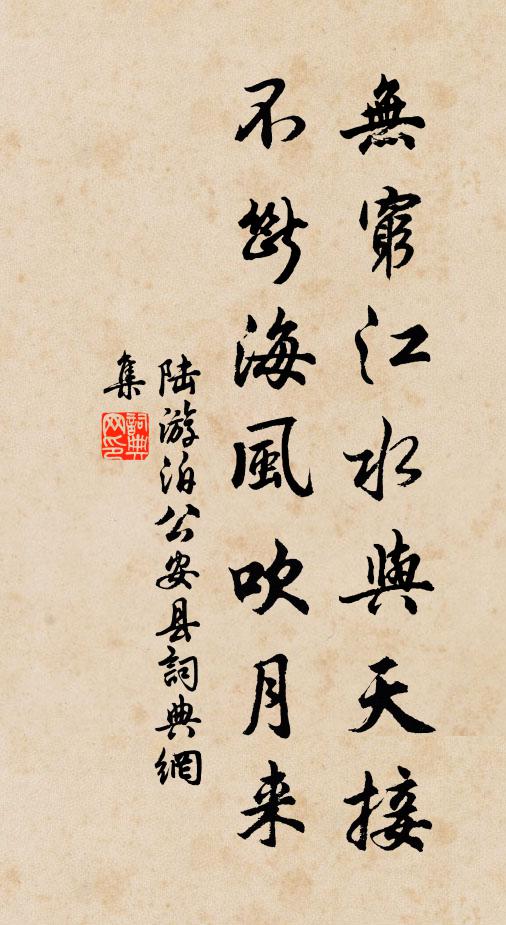 無窮江水與天接
不斷海風吹月来
陆游泊公安县詞典網
集
詞典
网印